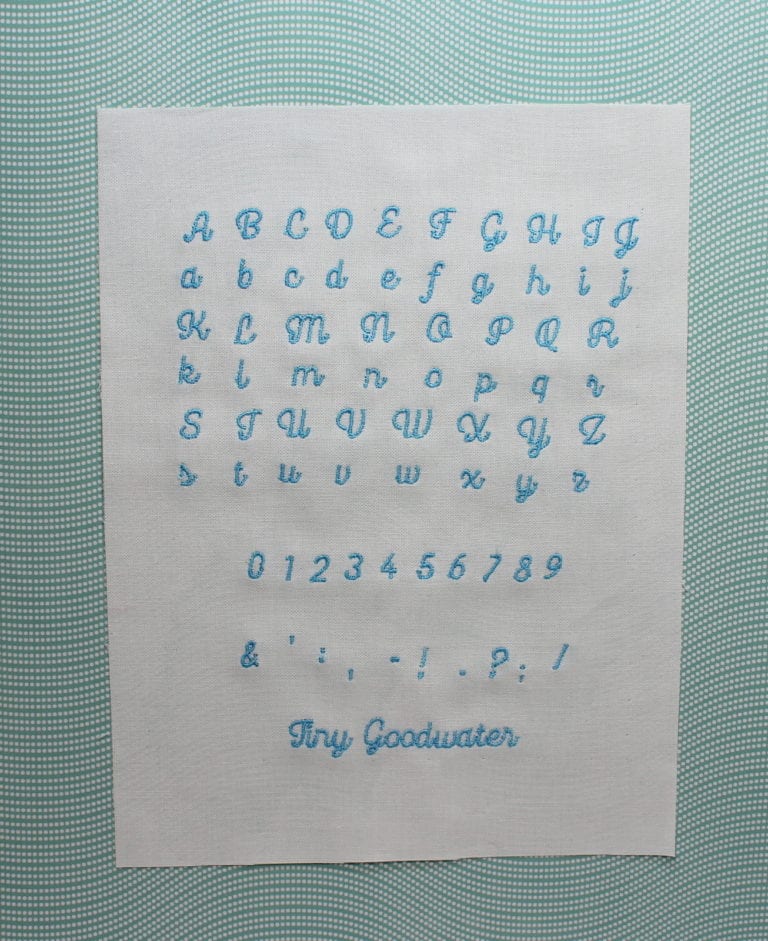 A B C D E F G H I J
a b c d e f g h i j
K L M N O P Q R
k l m n o p q r
S T U V W X Y Z
s t u v w x y z
0 1 2 3 4 5 6 7 8 9
& ' : , - ! . ? ; /
Tiny Goodwater